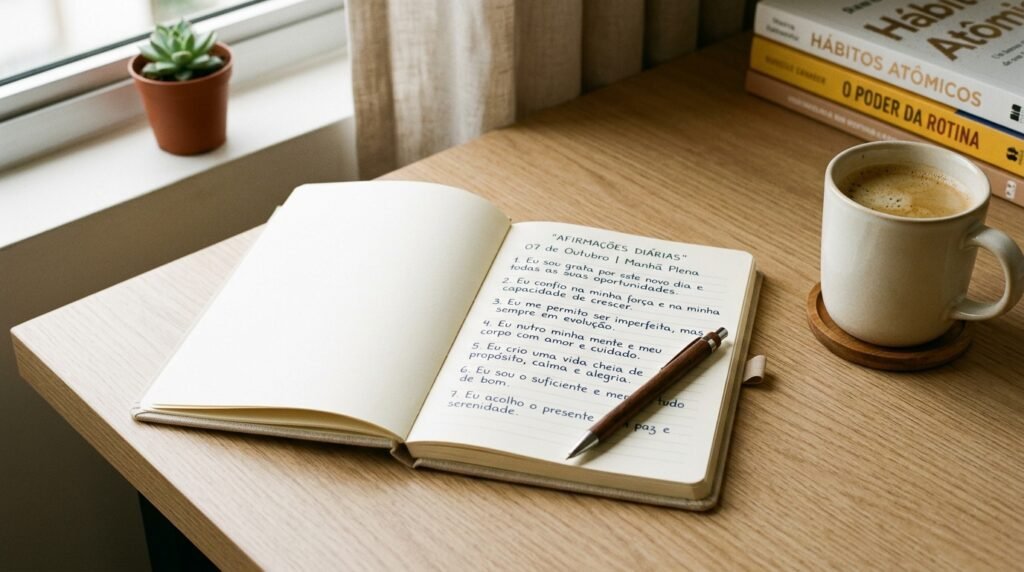 "AFIRMAÇÕES DIÁRIAS"
07 de Outubro | Manhã Plena
1. Eu sou grata por este novo dia e
todas as suas oportunidades.
2. Eu confio na minha força e na minha
capacidade de crescer.
3. Eu me permito ser imperfeita, mas
sempre em evolução.
4. Eu nutro minha mente e meu
corpo com amor e cuidado.
5. Eu crio uma vida cheia de
propósito, calma e alegria.
6. Eu sou o suficiente e tudo
de bom.
7. Eu acolho o presente paz e
serenidade.
Hábito
Atômic
HÁBITOS ATÔMICOS
O PODER DA ROTINA